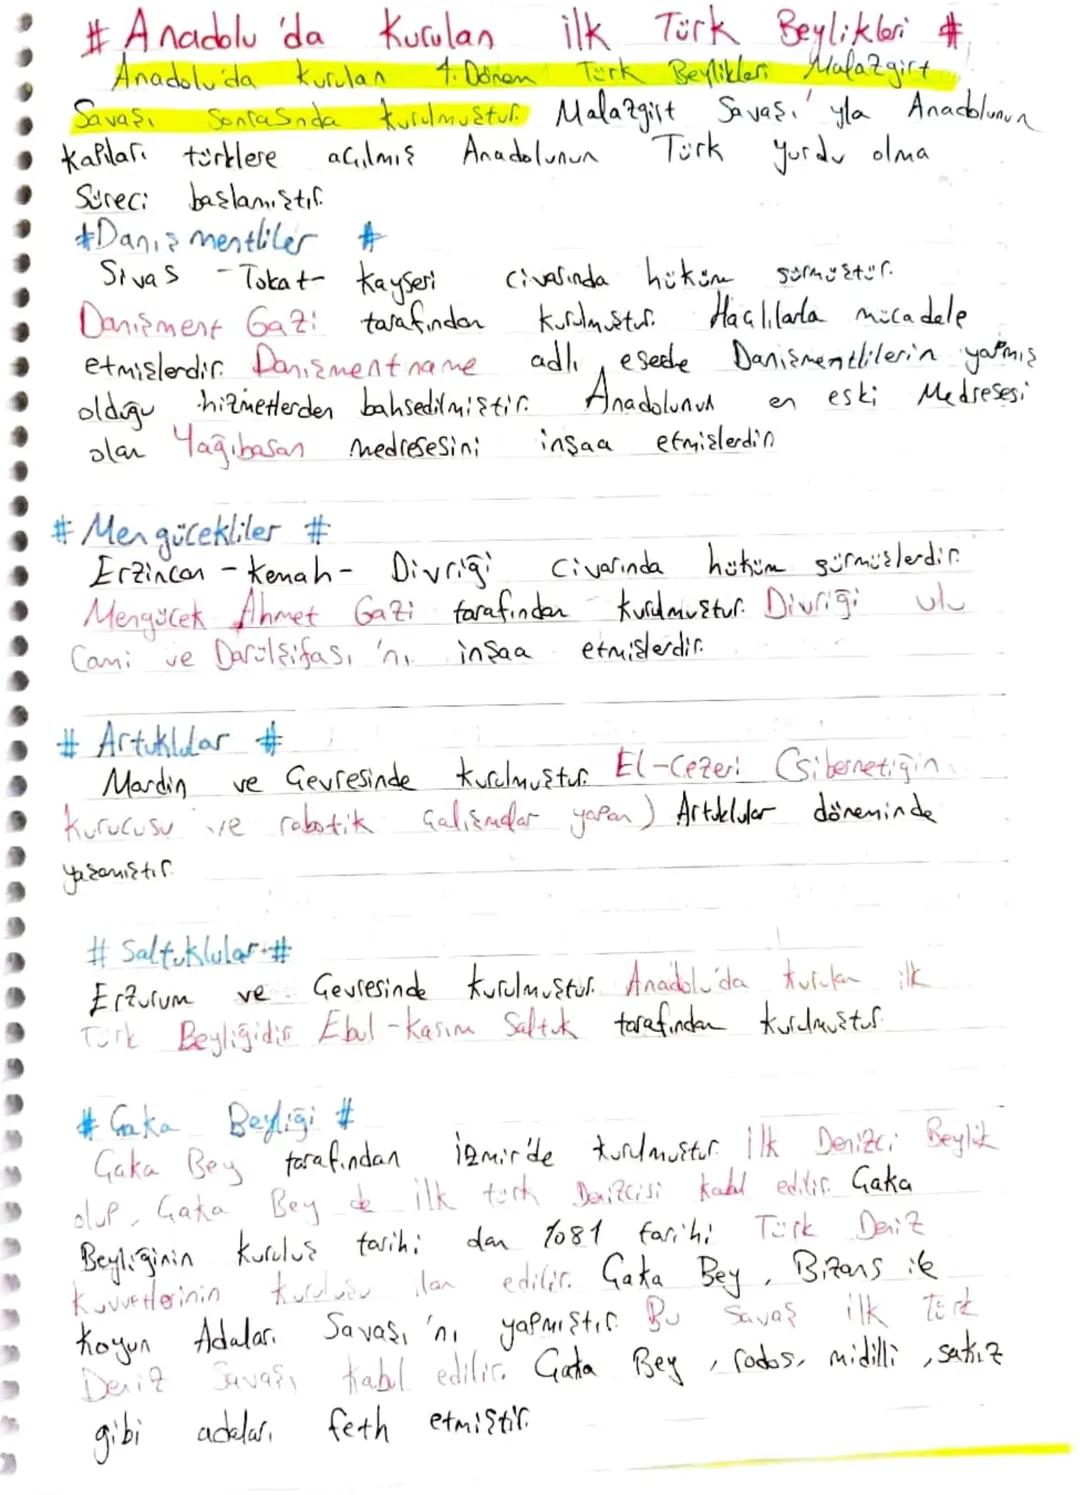 # Anadolu'da Kurulan ilk Türk Beylikleri #
Anadolu'da kurulan 1. Dönem Türk Beylikleri Malazgirt
Savaşı Sonrasında kurulmuştur. Malazgirt Savaşı'yla Anadolunun
kapıları türklere açılmış Anadolunun Türk yurdu olma
Süreci başlamıştır.
#Danişmentliler #
Sivas - Tokat - Kayseri civarında hüküm sürmüştür.
Danişment Gazi tarafından kurulmuştur. Haçlılarla mücadele
etmişlerdir. Danişmentname adlı eserde Danişmentlilerin yapmış
olduğu hizmetlerden bahsedilmiştir. Anadolunun en eski Medresesi
olan Yağıbasan medresesini inşaa etmişlerdir.
# Mengücekliler #
Erzincan - Kemah - Divriği civarında hüküm sürmüşlerdir.
Mengücek Ahmet Gazi tarafından kurulmuştur. Divriği ulu
Cami ve Darülşifası'nı inşaa etmişlerdir.
# Artuklular #
Mardin ve Çevresinde kurulmuştur. El-Cezeri (sibernetiğin
kurucusu ve robotik çalışmalar yapan) Artuklular döneminde
yaşamıştır.
# Saltuklular #
Erzurum ve Çevresinde kurulmuştur. Anadolu'da kurulan ilk
Türk Beyliğidir. Ebul-Kasım Saltuk tarafından kurulmuştur.
# Çaka Beyliği #
Çaka Bey tarafından İzmir'de kurulmuştur. İlk Denizci Beylik
olup, Çaka Bey de ilk türk Denizcisi kabul edilir. Çaka
Beyliğinin kuruluş tarihi olan 1081 tarihi Türk Deniz
Kuvvetlerinin kuruluşu ilan edilir. Çaka Bey, Bizans ile
Koyun Adaları Savaşı'nı yapmıştır. Bu Savaş ilk Türk
Deniz Savaşı kabul edilir. Çaka Bey, rodos, midilli, sakız
gibi adaları feth etmiştir.